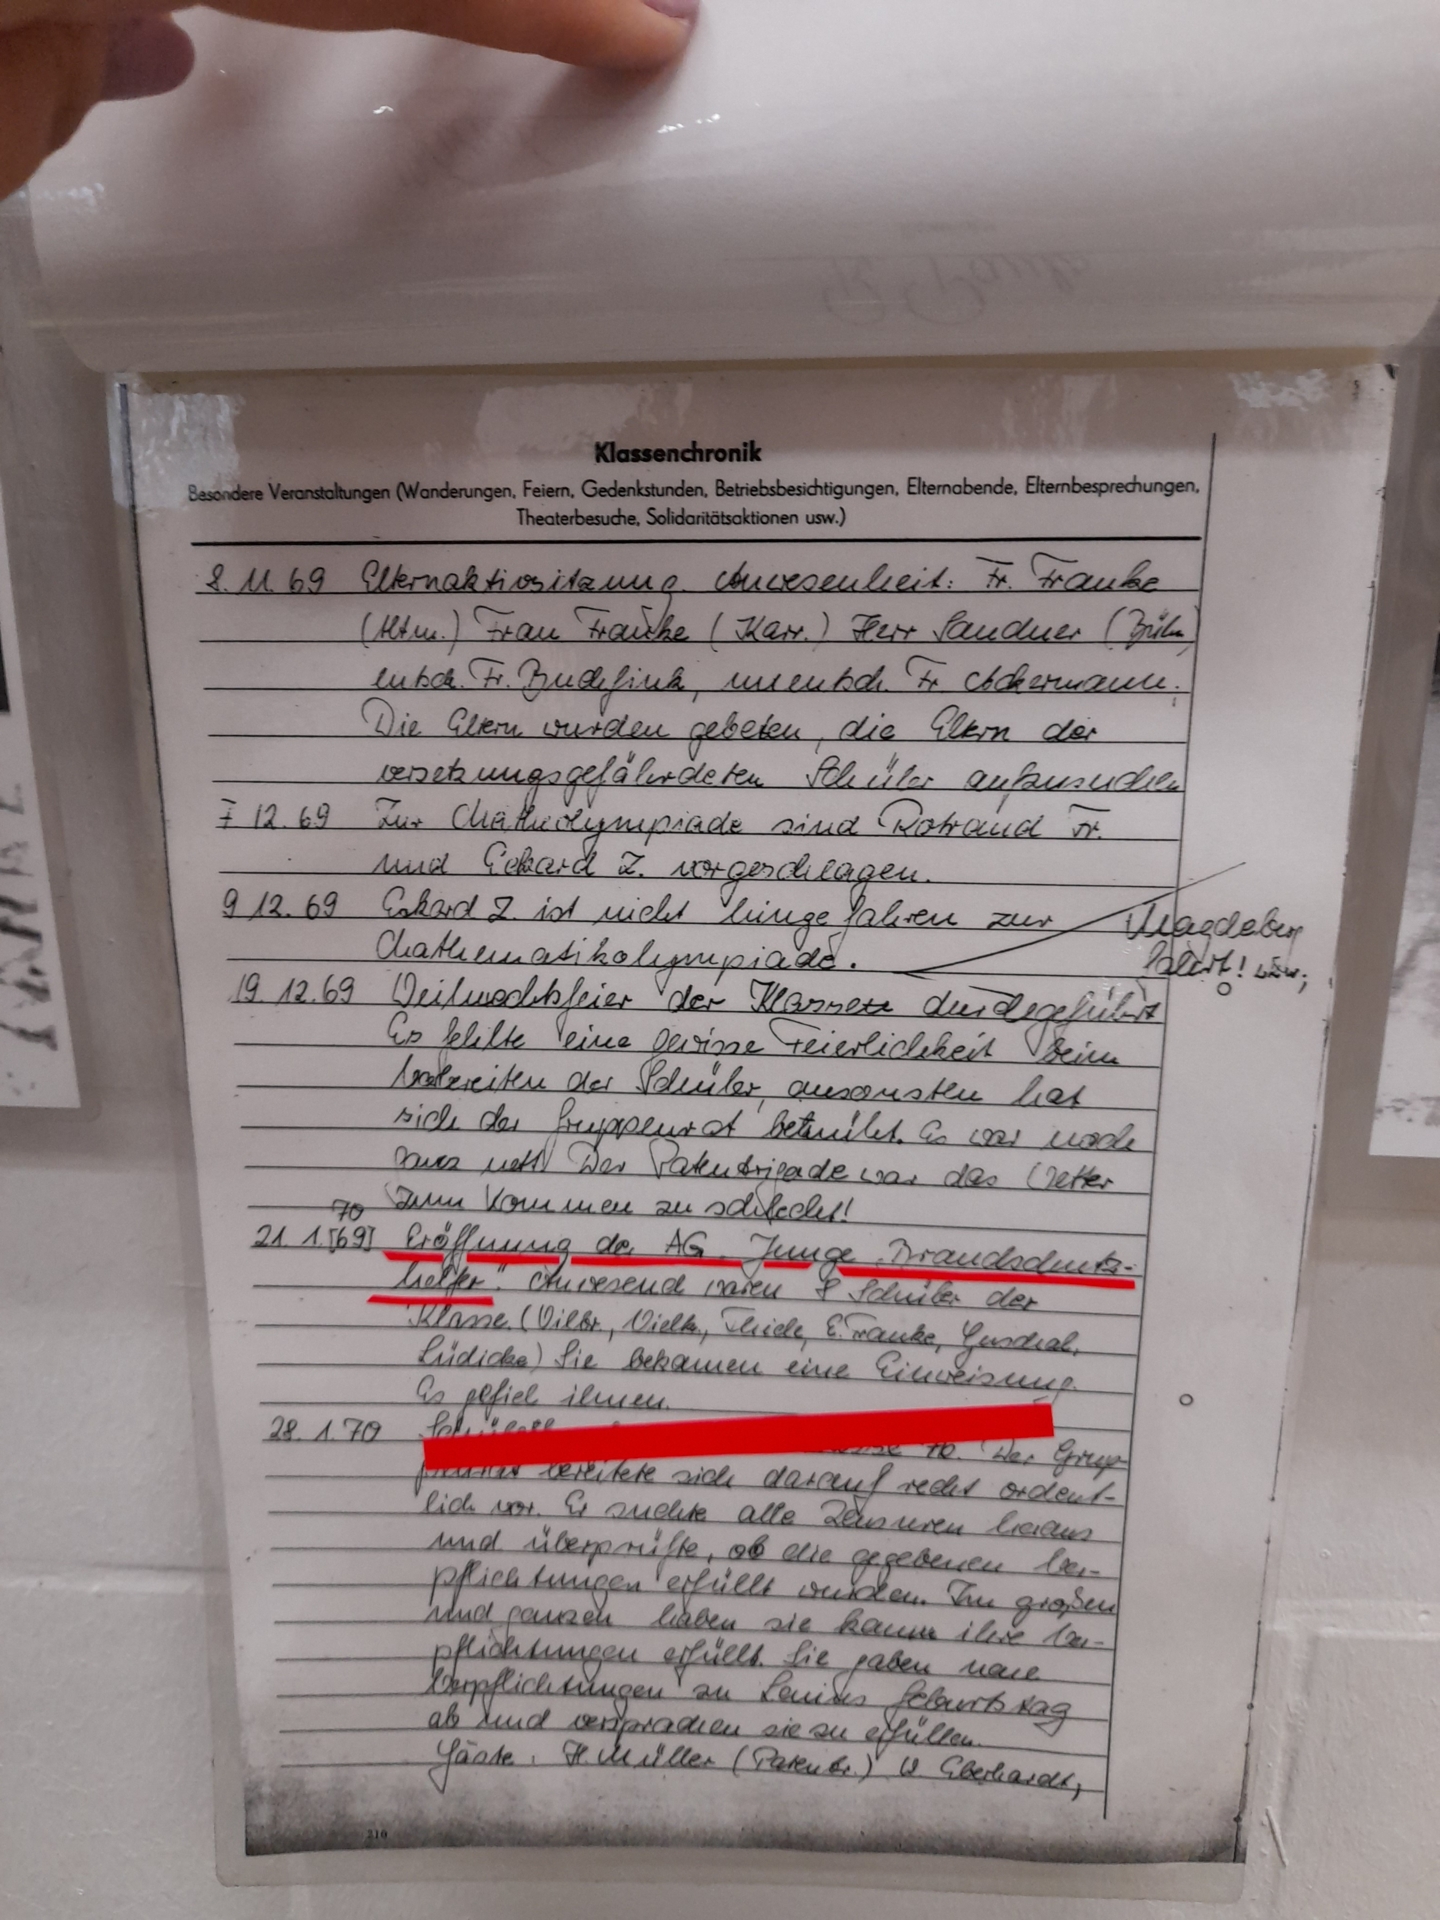 Klassenchronik
Besondere Veranstaltungen (Wanderungen, Feiern, Gedenkstunden, Betriebsbesichtigungen, Elternabende, Elternbesprechungen,
Theaterbesuche, Solidaritätsaktionen usw.)
8.11.69 Elternaktivsitzung. Anwesenheit: Fr. Franke
(Altm.) Frau Franke (Karr.) Herr Sandner
entsch. Fr. Budefink, unentsch. Fr. Ackermann.
Die Eltern wurden gebeten, die Eltern der
versetzungsgefährdeten Schüler aufzusuchen
7 12.69 Zur Matheolympiade sind Rotraud Fr.
und Eckard Z. vorgeschlagen.
9 12.69 Eckard Z. ist nicht hingefahren zur
Mathematikolympiade.
Magdeburg
19. 12.69 Weihnachtsfeier der Klasse durchgeführt
Es fehlte eine gewisse Feierlichkeit beim
Vorbereiten der Schüler, ansonsten hat
sich der Gruppenrat bemüht. Es war noch
ganz nett. Der Patenbrigade war das Wetter
zum Kommen zu schlecht!
70
21. 1.[69] Eröffnung der AG. Junge Brandschutz-
helfer" Anwesend waren 8 Schüler der
Klasse. Thiele, E. Franke,
Lüdicke) Sie bekamen eine Einweisung.
Es gefiel ihnen.
28. 1.70 70. Der Grup-
penrat bereitete sich darauf recht ordent-
lich vor. Er suchte alle Zensuren heraus
und überprüfte, ob die gegebenen Ver-
pflichtungen erfüllt wurden. Im großen
und ganzen haben sie kaum ihre Ver-
pflichtungen erfüllt. Sie gaben neue
Verpflichtungen zu Lenins Geburtstag
ab und versprachen sie zu erfüllen.
Gäste: H. Müller (Patenbr.) Eberhardt,
210